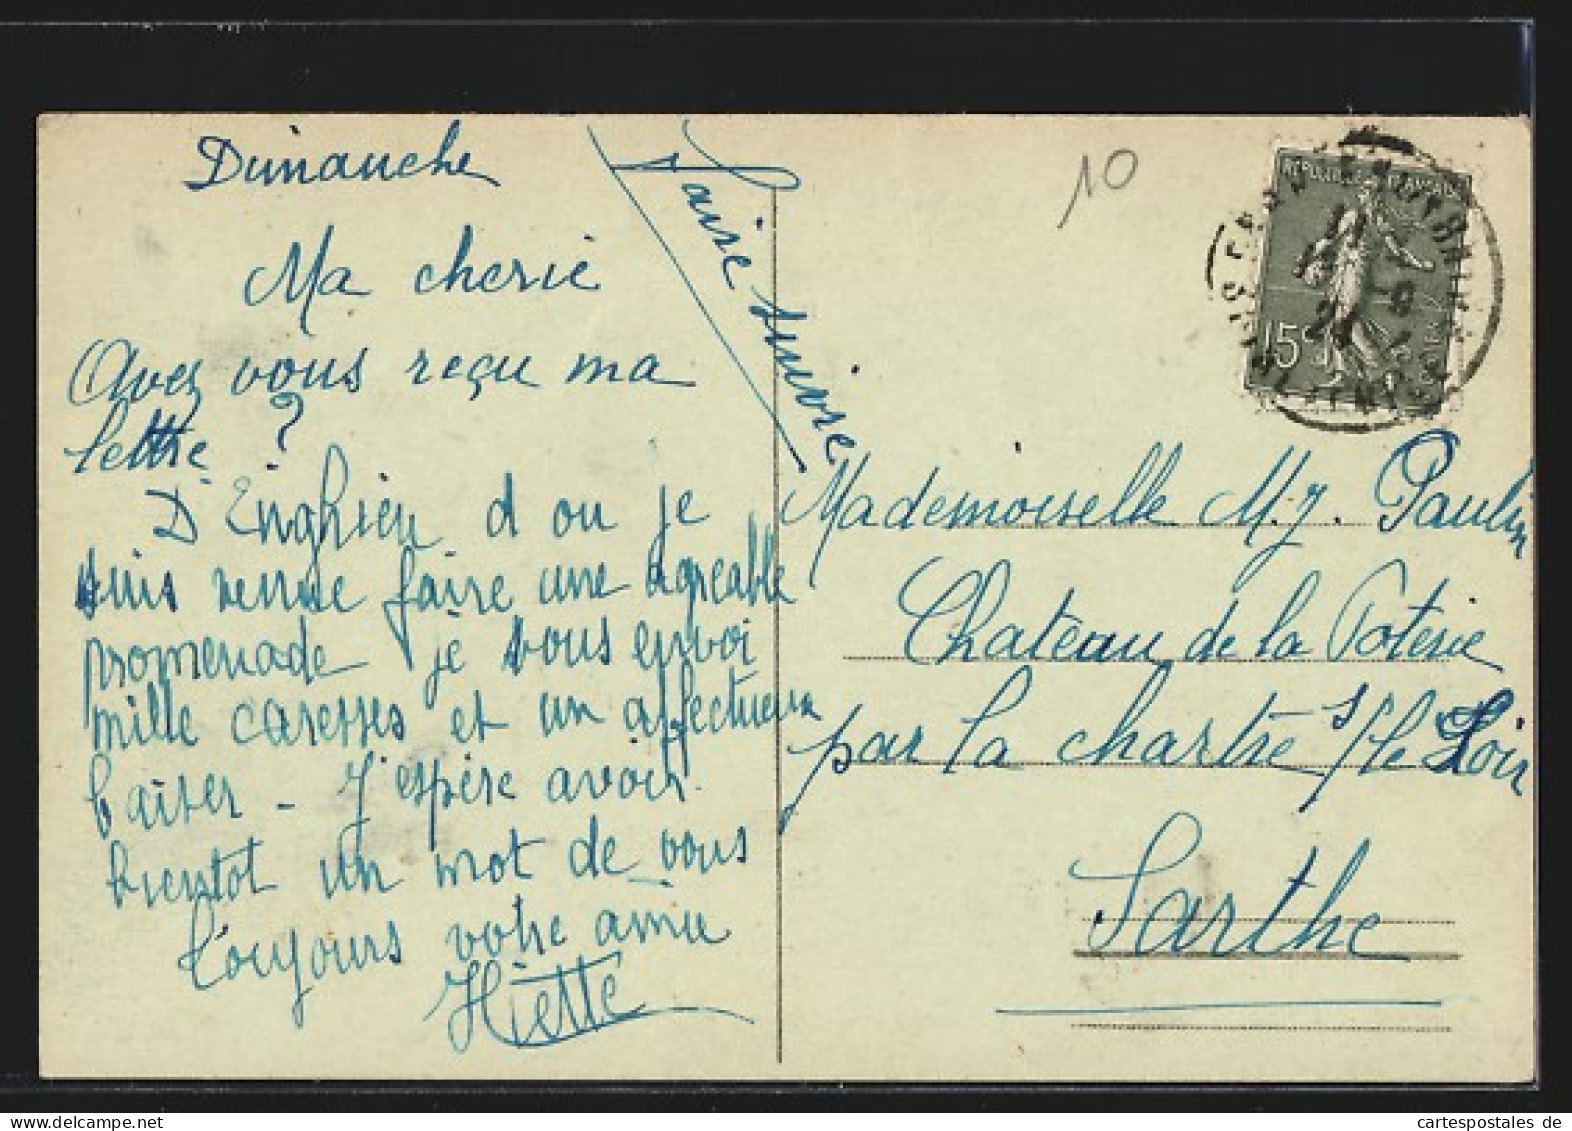 Dimanche
Ma cherie
Avez vous reçu ma
lettre ?
D'Enghien d ou je
suis venue faire une agreable
promenade je vous envoi
mille caresses et un affectueux
baiser - J'espère avoir
bientot un mot de vous
Toujours votre amie
Hiette
Faire suivre
10
15c
Mademoiselle M. J. Paulin
Chateau de la Poterie
par la chartre s/le Loir
Sarthe
cartespostales de